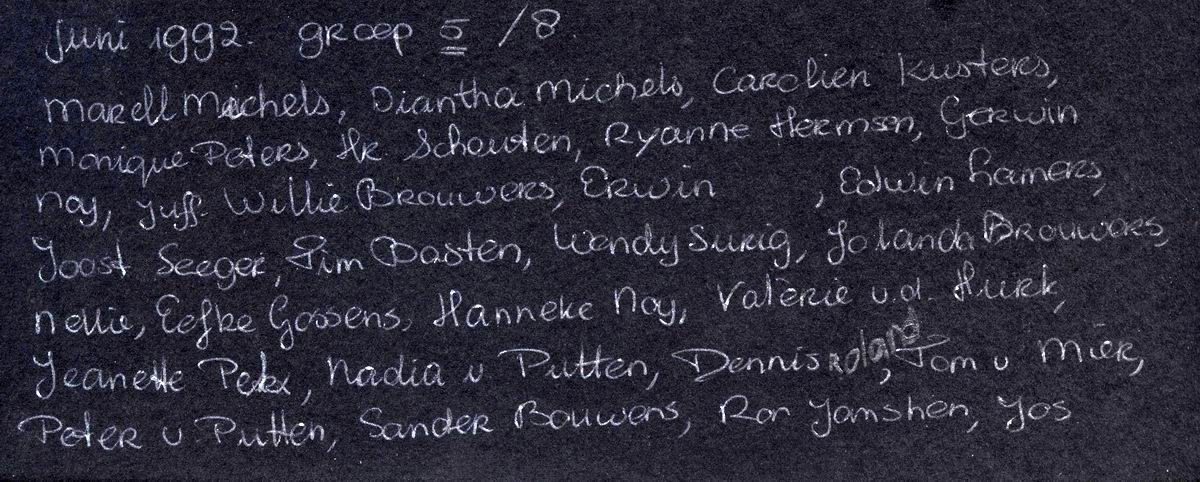 Juni 1992. groep 5 /8.
Marell Michels, Diantha Michels, Carolien Kusters,
Monique Peters, Hr Schouten, Ryanne Hermsen, Gerwin
Noy, Juff. Willie Brouwers, Erwin , Edwin Lamers,
Joost Seeger, Pim Basten, Wendy Surig, Jolanda Brouwers,
Nellie, Eefke Gossens, Hanneke Noy, Valerie v.d. Hurk,
Jeanette Nadia v Putten, Dennis Roland, Tom v Mier,
Peter v. Putten, Sander Bouwens, Ron Jamshen, Jos